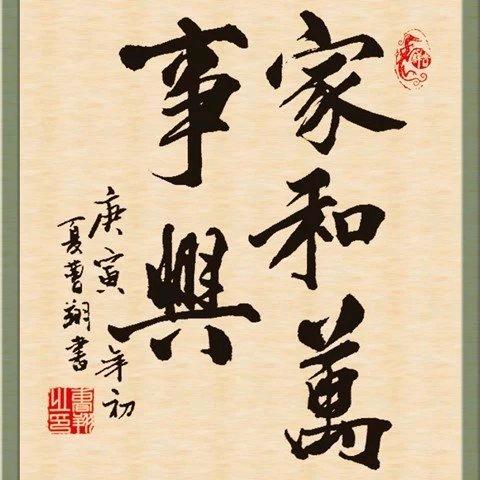 家和萬
事興
庚寅年初
夏曹翔書